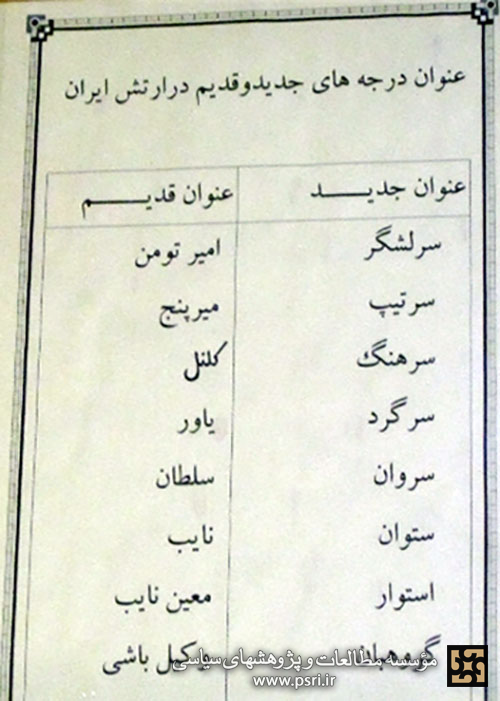 عنوان درجه های جدیدوقدیم درارتش ایران
عنوان جدیـــد عنوان قدیـــم
سرلشگر امیر تومن
سرتیپ میرپنج
سرهنگ کلنل
سرگرد یاور
سروان سلطان
ستوان نایب
استوار معین نایب
گروهبان وکیل باشی
مؤسسه مطالعات و پژوهشهای سیاسی
www.psri.ir